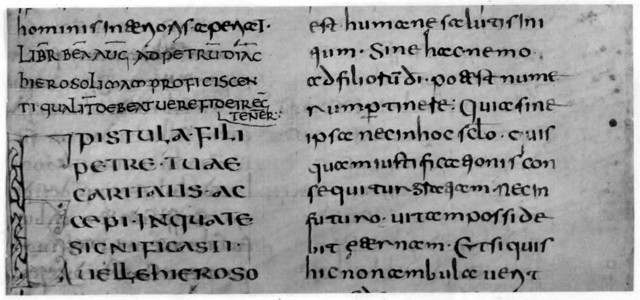 hominis
LIBR BEA AUG AD PETRU DIAC
hierosolimam proficiscen
ti qualit debeat uere fidei reg
TENER:
EPISTULA · FILI
PETRE · TUAE
CARITATIS · AC
CEPI · IN QUA TE
SIGNIFICASTI ·
UELLE hIEROSO
est humane salutis ini
tium · Sine hac nemo
ad filioru di · potest nume
rum ptinere : Quia sine
ipsa nec in hoc sclo · quis
quam iustificationis con
sequitur gratiam · nec in
futuro · uitam posside
bit aeternam · Et si quis
hic non ambulauerit